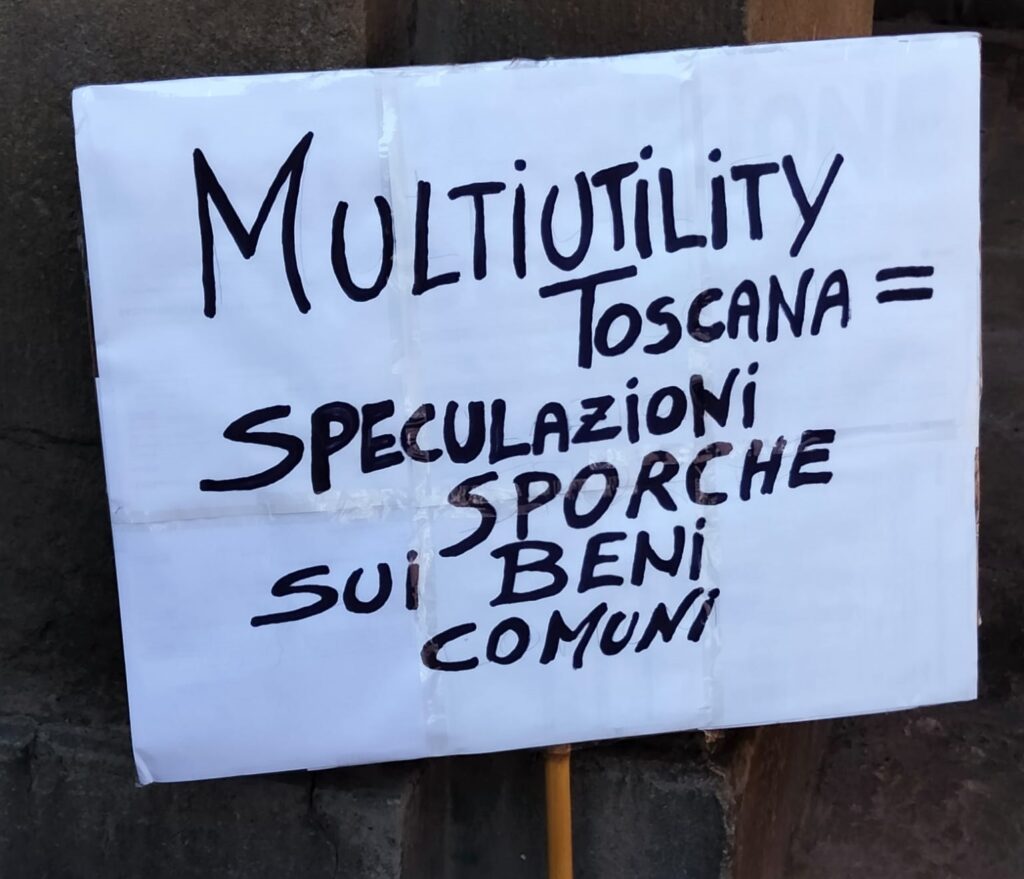 MULTIUTILITY
TOSCANA =
SPECULAZIONI
SPORCHE
SUI BENI
COMUNI